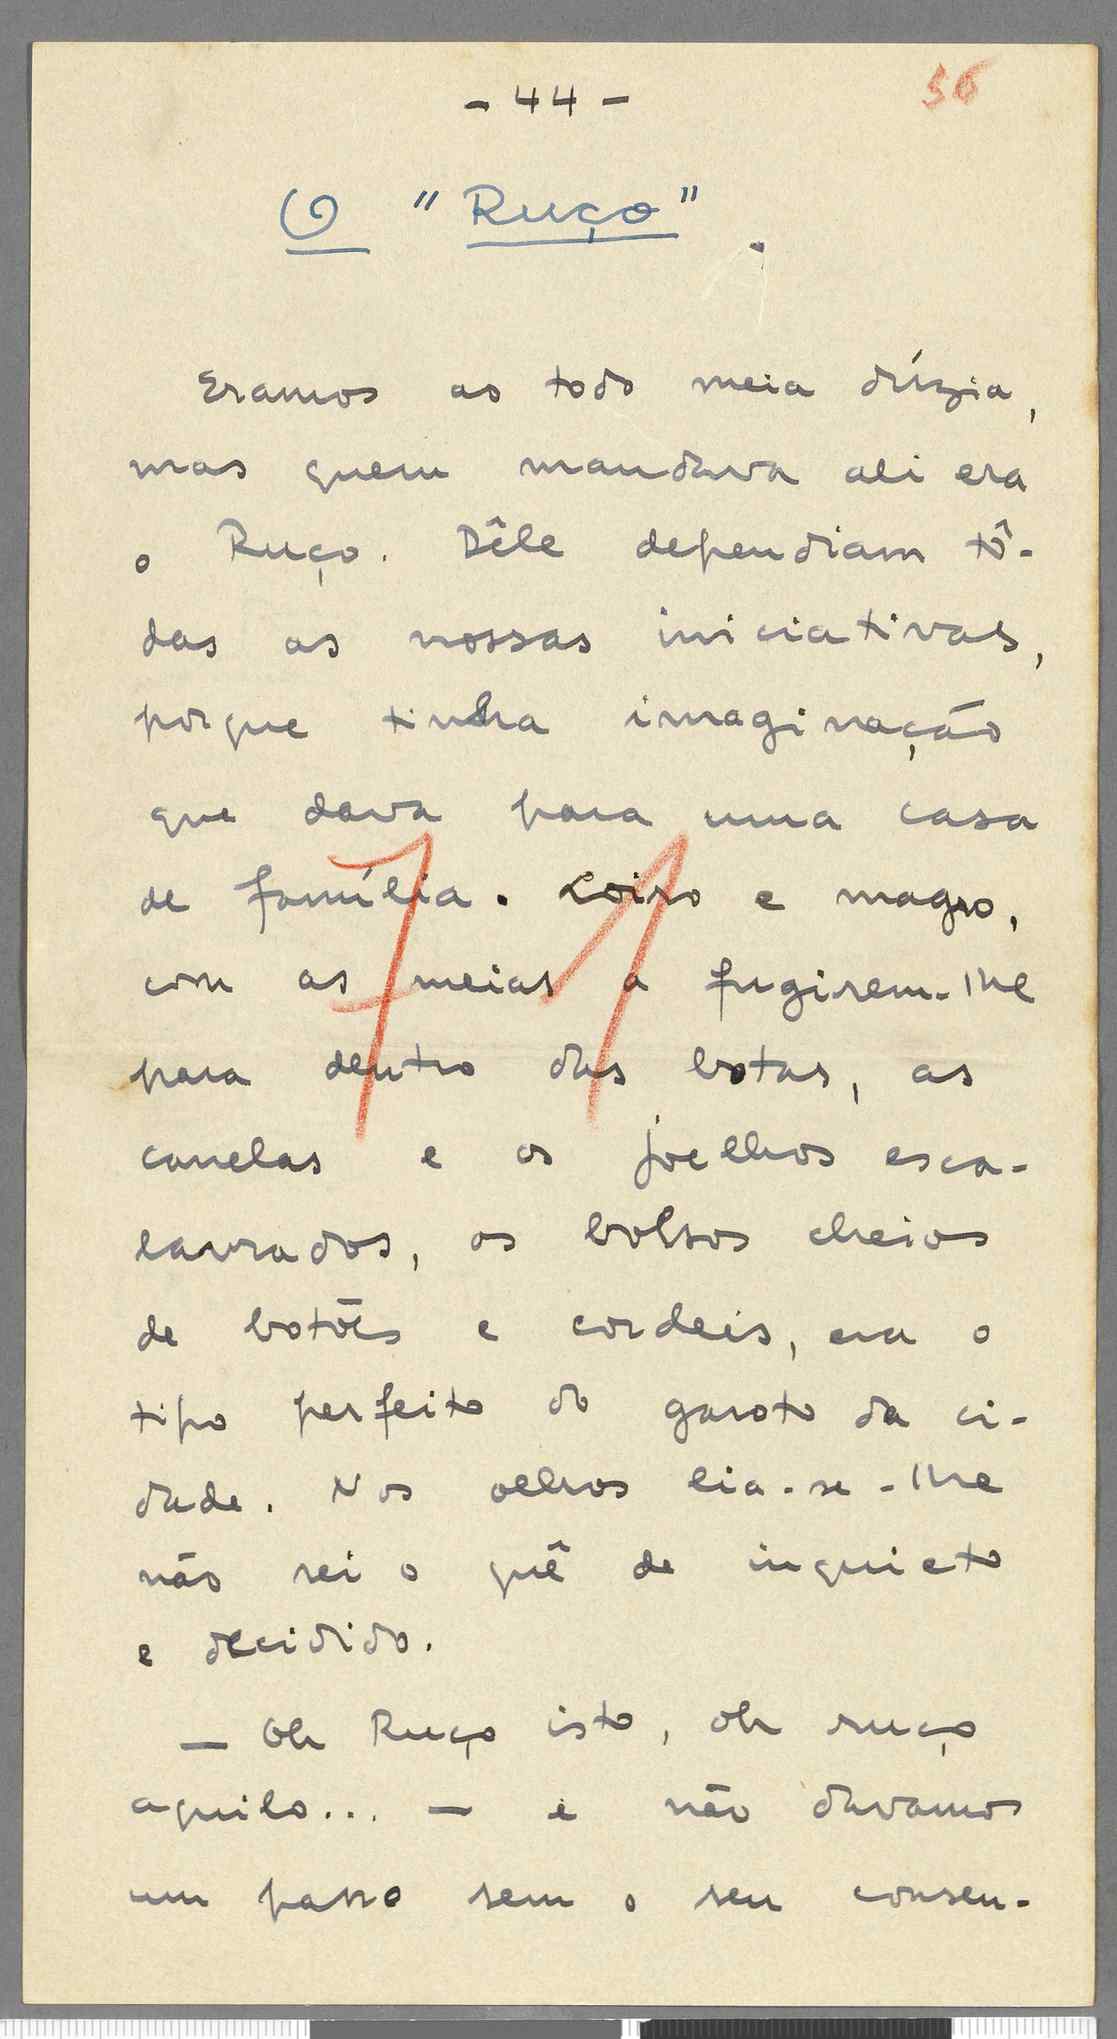 - 44 -
56
O "Ruço".
Eramos ao todo meia dúzia,
mas quem mandava ali era
o Ruço. Dêle dependiam tô-
das as nossas iniciativas,
porque tinha imaginação
que dava para uma casa
de família. Loiro e magro,
com as meias a fugirem-lhe
para dentro das botas, as
canelas e os joelhos esca-
lavrados, os bolsos cheios
de botões e cordeis, era o
tipo perfeito do garoto da ci-
dade. Nos olhos lia-se-lhe
não sei o quê de inquieto
e decidido.
— Oh Ruço isto, oh ruço
aquilo... — e não davamos
um passo sem o seu consen-
71